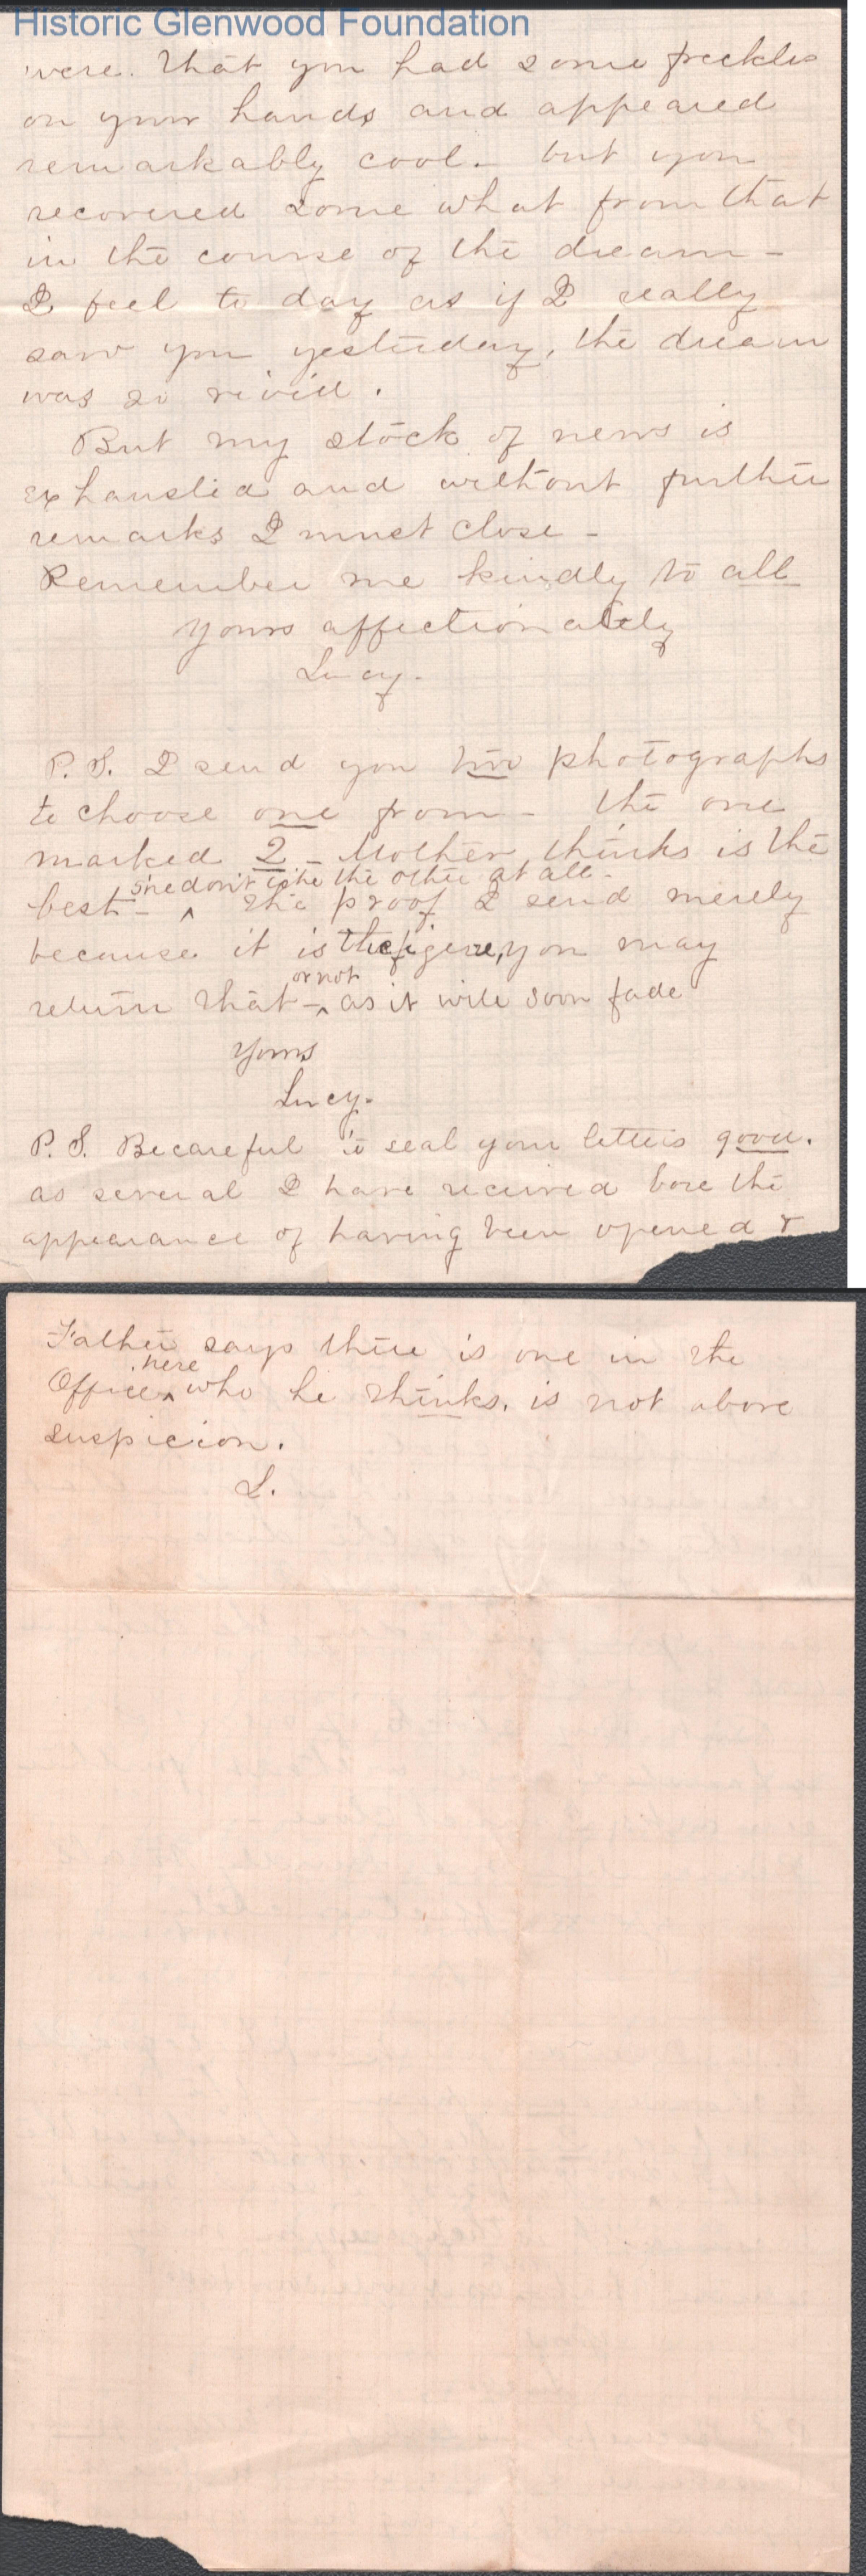 Historic Glenwood Foundation
were. That you had some freckles
on your hands and appeared
remarkably cool. but you
recovered some what from that
in the course of the dream -
I feel to day as if I really
saw you yesterday, the dream
was so vivid.
But my stock of news is
exhausted and without further
remarks I must close -
Remember me kindly to all
Yours affectionately
Lucy.
P.S. I send you two photographs
to choose one from - the one
marked 2 - Mother thinks is the
she don't like the other at all.
best - ^ The proof I send merely
because it is the you may
or not
return that - ^ as it will soon fade
Yours
Lucy.
P.S. Be careful to seal your letters good.
as several I have received bore the
appearance of having been opened &
Father says there is one in the
here
Office ^ who he thinks, is not above
suspicion.
L.